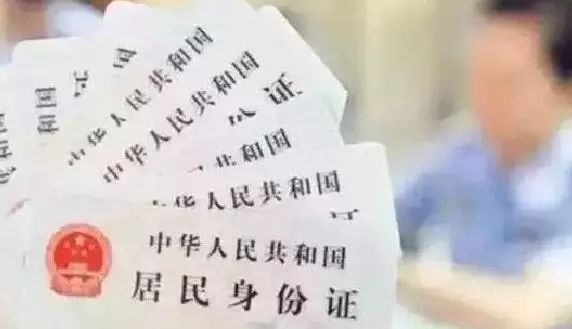 国居
中华人民共和国
中华人民共和国
份证
共和国
中华人民共和国
中华人民共和国
居民身份证